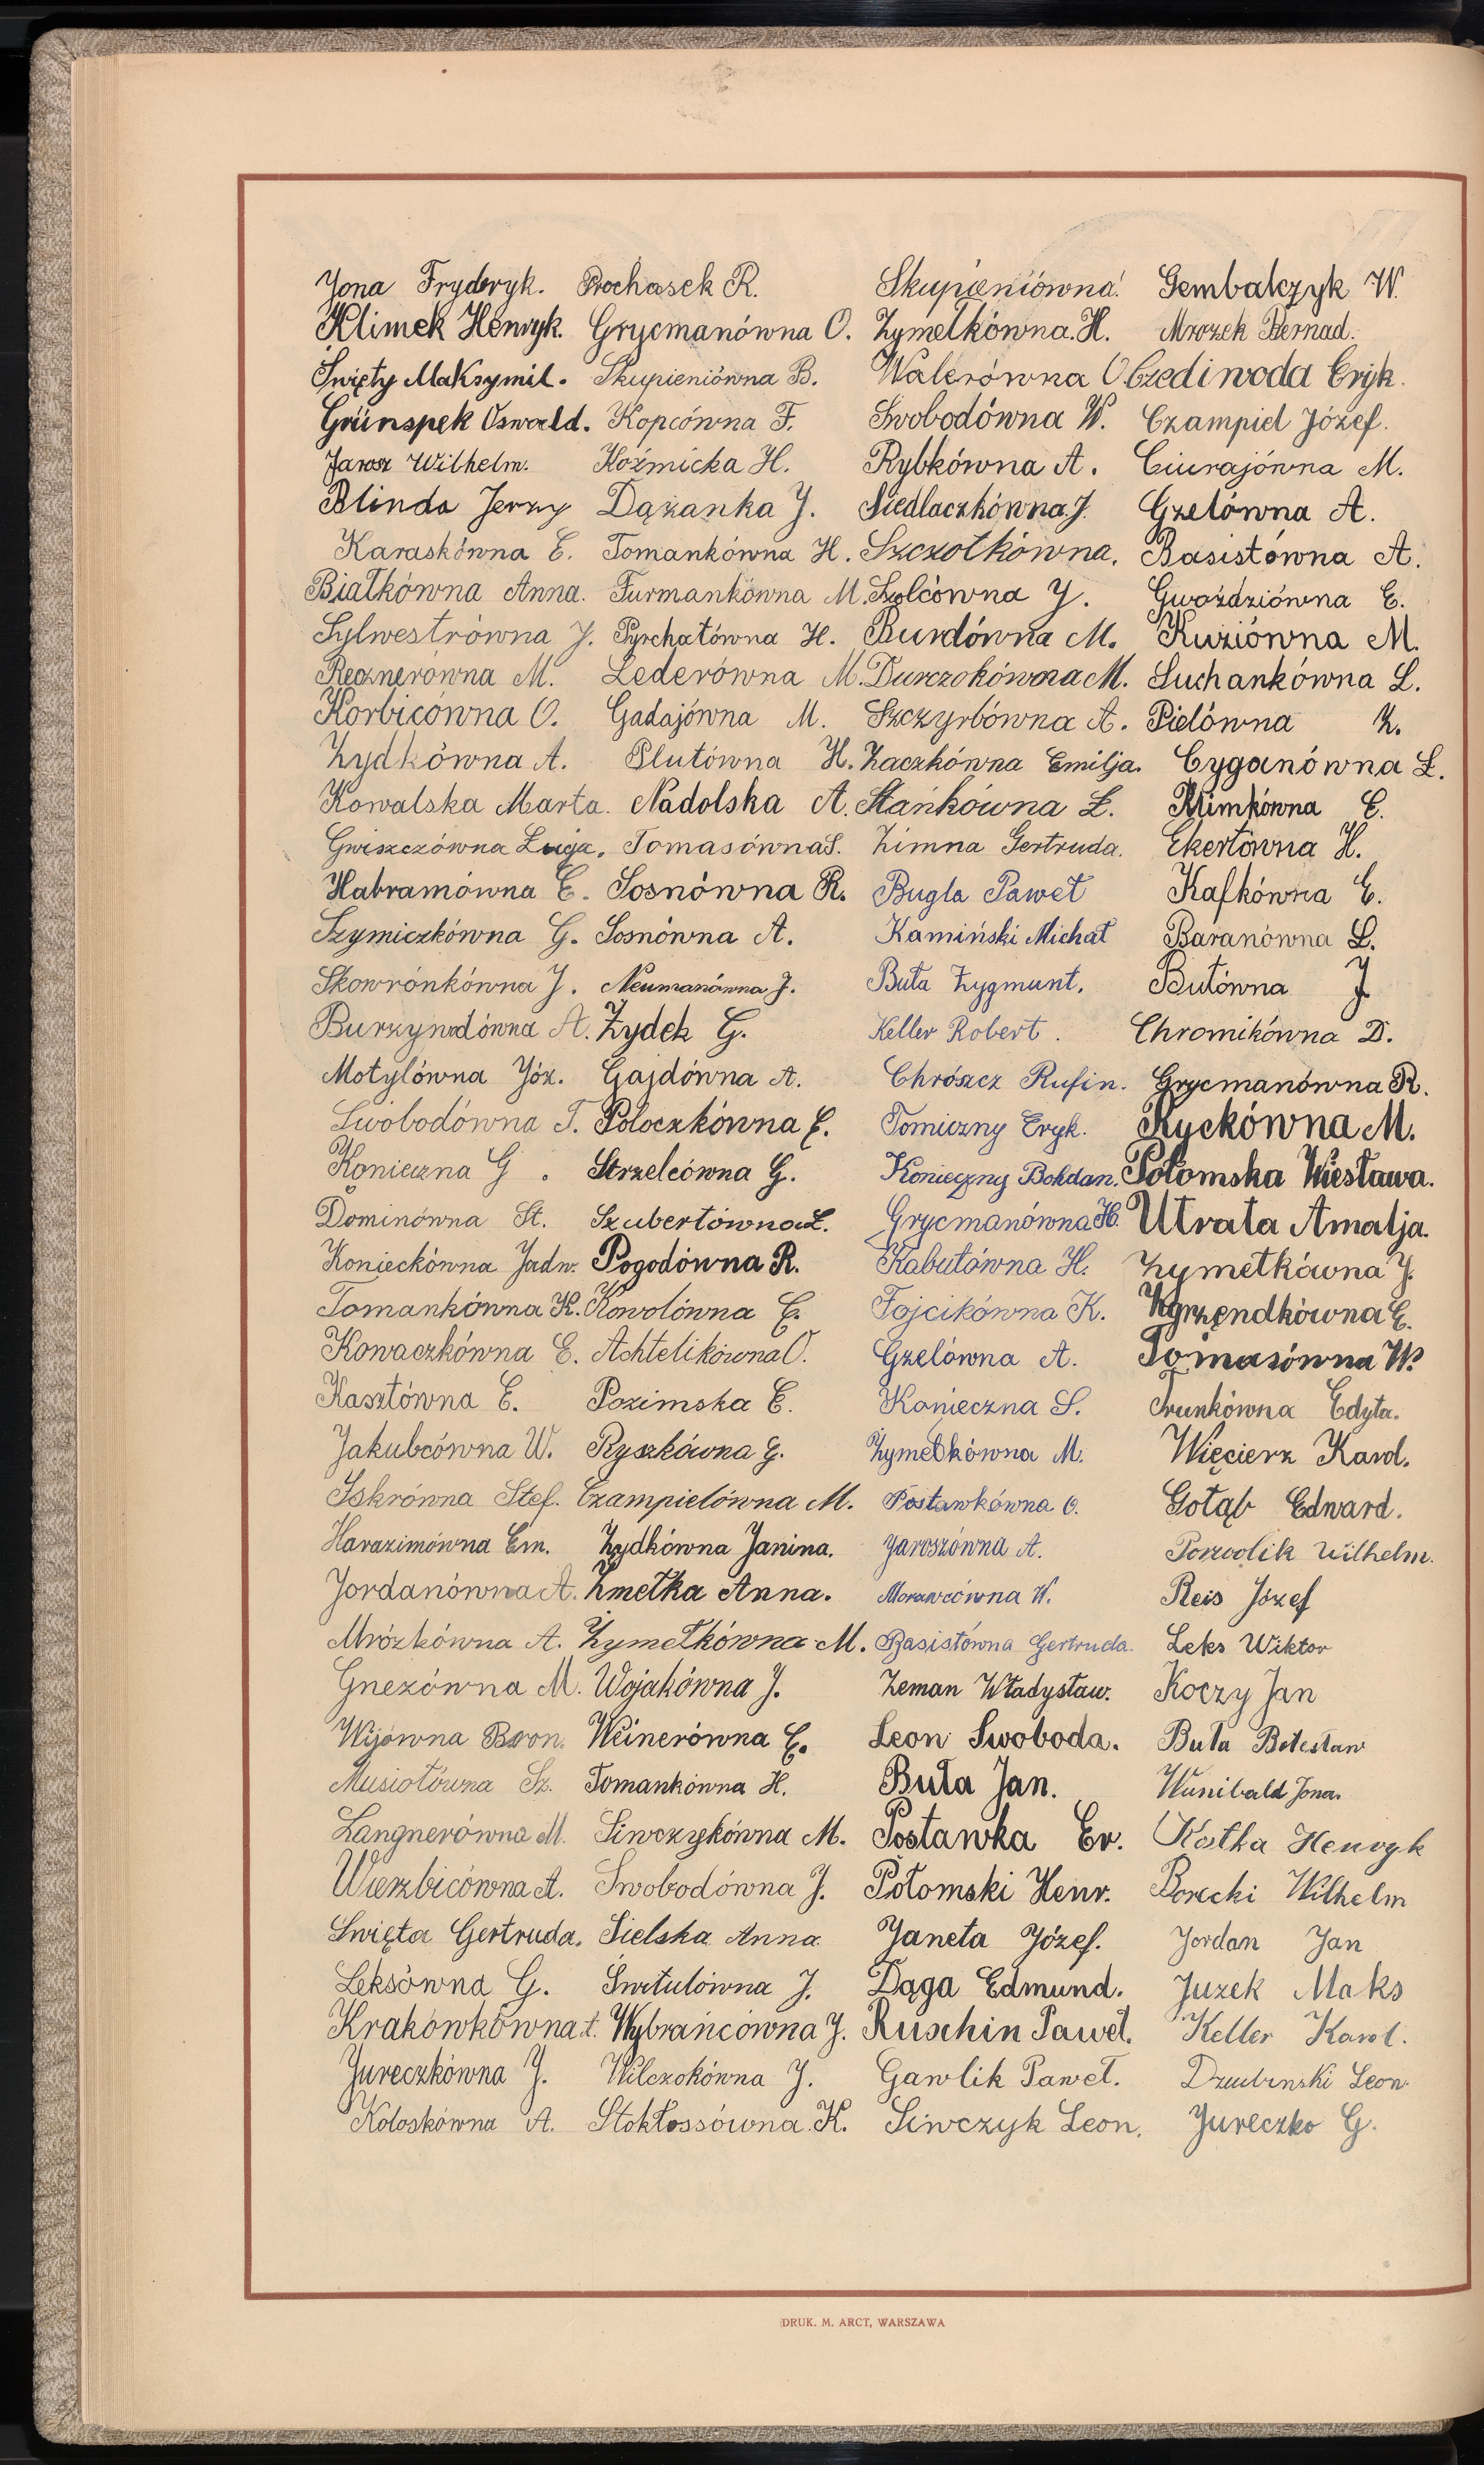 Jona Fryderyk.
Klimek Henryk.
Święty Maksymil.
Grünspek Oswald.
Jarosz Wilhelm.
Blinda Jerzy
Karaskówna E.
Białkówna Anna.
Sylwestrówna J.
Recznerówna M.
Korbicówna O.
Zydkówna A.
Kowalska Marta.
Gwiszczówna Łucja.
Habramówna E.
Szymiczkówna G.
Skowrónkówna J.
Burzywodówna A.
Motylówna Józ.
Swobodówna T.
Konieczna G.
Dominówna St.
Konieckówna Jadw.
Tomankówna K.
Kowaczkówna E.
Kasztówna E.
Jakubcówna W.
Iskrówna Stef.
Harazimówna Em.
Jordanówna A.
Mrózkówna A.
Gnezówna M.
Wijówna Bron.
Musiołówna Sz.
Langnerówna M.
Wierzbicówna A.
Święta Gertruda.
Leksówna G.
Krakówkówna A.
Jureczkówna J.
Koloskówna A.
Prochasek R.
Grycmanówna O.
Skupieniówna B.
Kopcówna F.
Koźmicka H.
Dążanka J.
Tomankówna H.
Furmankówna M.
Pyrchałówna H.
Lederówna M.
Gadajówna M.
Plutówna H.
Nadolska A.
Tomasówna S.
Sosnówna R.
Sosnówna A.
Neumanówna J.
Żydek G.
Gajdówna A.
Poloczkówna E.
Strzelcówna G.
Szubertówna Ł.
Pogodówna R.
Kowolówna E.
Achtelikówna O.
Pozimska E.
Ryszkówna G.
Czampielówna M.
Zydkówna Janina.
Żmełka Anna.
Żymełkówna M.
Wojakówna J.
Weinerówna E.
Tomankówna H.
Siwczykówna M.
Swobodówna J.
Sielska Anna
Świtulówna J.
Wybrańcówna J.
Wilczokówna J.
Stokłossówna K.
Skupieniówna
Zymełkówna H.
Walerówna O.
Swobodówna W.
Rybkówna A.
Siedlaczkówna J.
Szczotkówna.
Szolcówna J.
Burdówna M.
Durczokówna M.
Szczyrbówna A.
Zaczkówna Emilja.
Stańkówna Ł.
Zimna Gertruda.
Bugla Paweł
Kamiński Michał
Buła Zygmunt.
Keller Robert.
Chrószcz Rufin.
Tomiczny Eryk.
Konieczny Bohdan.
Grycmanówna H.
Kabutówna H.
Fojcikówna K.
Gzelówna A.
Konieczna S.
Żymełkówna M.
Postawkówna O.
Jaroszówna A.
Morawcówna W.
Basistówna Gertruda.
Zeman Władysław.
Leon Swoboda.
Buła Jan.
Postawka Er.
Połomski Henr.
Janeta Józef.
Dąga Edmund.
Ruschin Paweł.
Gawlik Paweł.
Siwczyk Leon.
Gembalczyk W.
Mrozek Bernad.
Czediwoda Eryk.
Czampiel Józef.
Ciurajówna M.
Gzelówna A.
Basistówna A.
Gwoździówna E.
Kuziówna M.
Suchankówna L.
Pielówna Z.
Cyganówna Ł.
Klimkówna E.
Ekertówna H.
Kafkówna E.
Baranówna L.
Butówna J.
Chromikówna D.
Grycmanówna R.
Ryckówna M.
Połomska Wiesława.
Utrata Amalja.
Zymełkówna J.
Zgrzendkówna E.
Tomasówna W.
Trunkówna Edyta.
Więcierz Karol.
Gołąb Edward.
Porwolik Wilhelm.
Reis Józef
Leks Wiktor
Koczy Jan
Buła Bolesław
Wunibald Jona.
Kostka Henryk
Borecki Wilhelm
Jordan Jan
Juzek Maks
Keller Karol.
Dziubinski Leon.
Jureczko G.
DRUK. M. ARCT, WARSZAWA